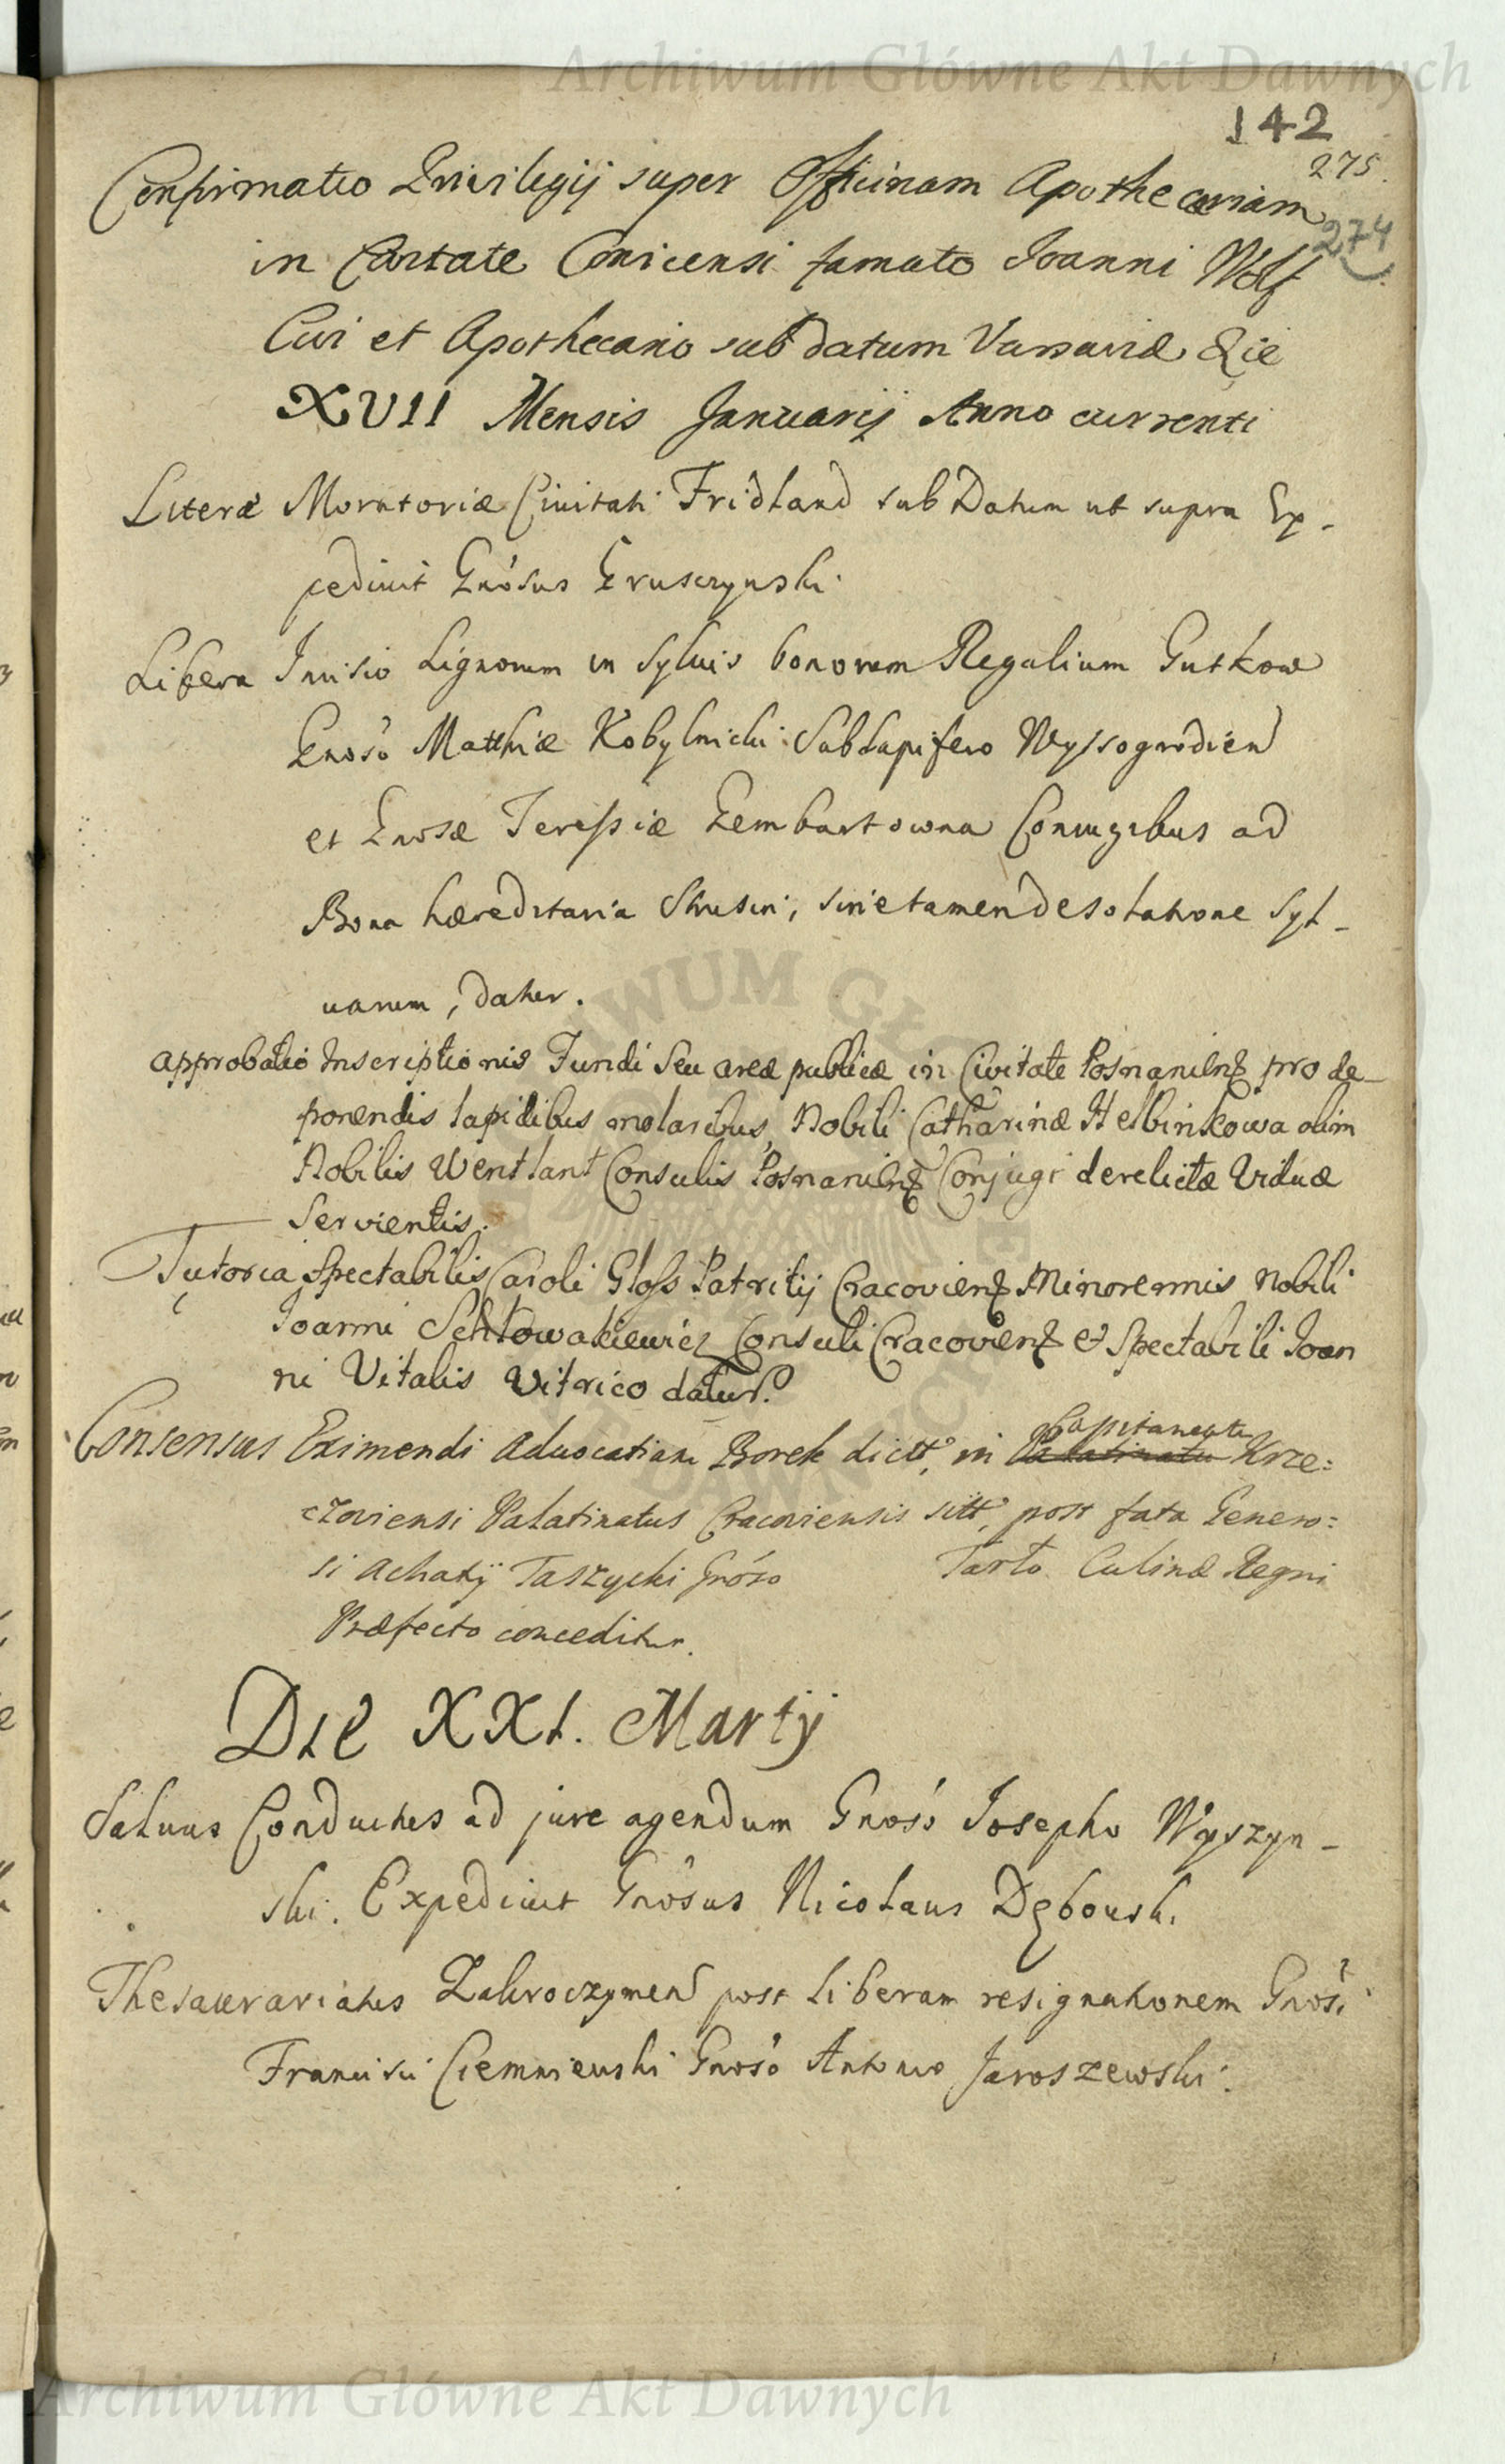 Archiwum Główne Akt Dawnych
142
275.
274
Confirmatio Privilegij super Officinam Apothecariam
in Civitate Conicensi famato Joanni Wolf
Civi et Apothecario sub datum Varsaviæ Die
XVII Mensis Januarij Anno currenti
Literæ Moratoriæ Civitati Fridland sub Datum ut supra Ex-
pediuit Gnosus Gruszczynski.
Libera Incisio Lignorum in Syluis bonorum Regalium Gutkow
Gnoso Matthiæ Kobylnicki Subdapifero Wyssogrodien
et Gnosæ Teressiæ Gembartowna Conjugibus ad
Bona hæreditaria, sine tamen desolatione Syl-
uarum, datur.
Approbatio Inscriptionis Fundi seu areæ publicæ in Civitate Posnanien pro de-
ponendis lapidibus molaribus, Nobili Catharinæ Helbinkowa olim
Nobilis Wentlant Consulis Posnanien Conjugi derelictæ Viduæ
Servientis.
Tutoria Spectabilis Caroli Gloss Patritij Cracovien Minorennis Nobili
Joanni Consuli Cracovien & Spectabili Joan
ni Vitalis Vitrico datur.
Consensus Eximendi Aduocatiam Borek dictt, in Palatinatu Capitaneatu Krze=
czoviensi Palatinatus Cracoviensis sitt, post fata Genero=
si Achatij Taszycki Gnoso Tarło Culinæ Regni
Præfecto conceditur.
Die XXI. Martij
Saluus Conductus ad jure agendum Gnoso Josepho Wyszyn-
ski. Expediuit Gnosus Nicolaus Dębowski
Thesaurariatus Zakroczymen post liberam resignationem Gnosi
Francisci Ciemniewski Gnoso Antonio Jaroszewski.
Archiwum Główne Akt Dawnych